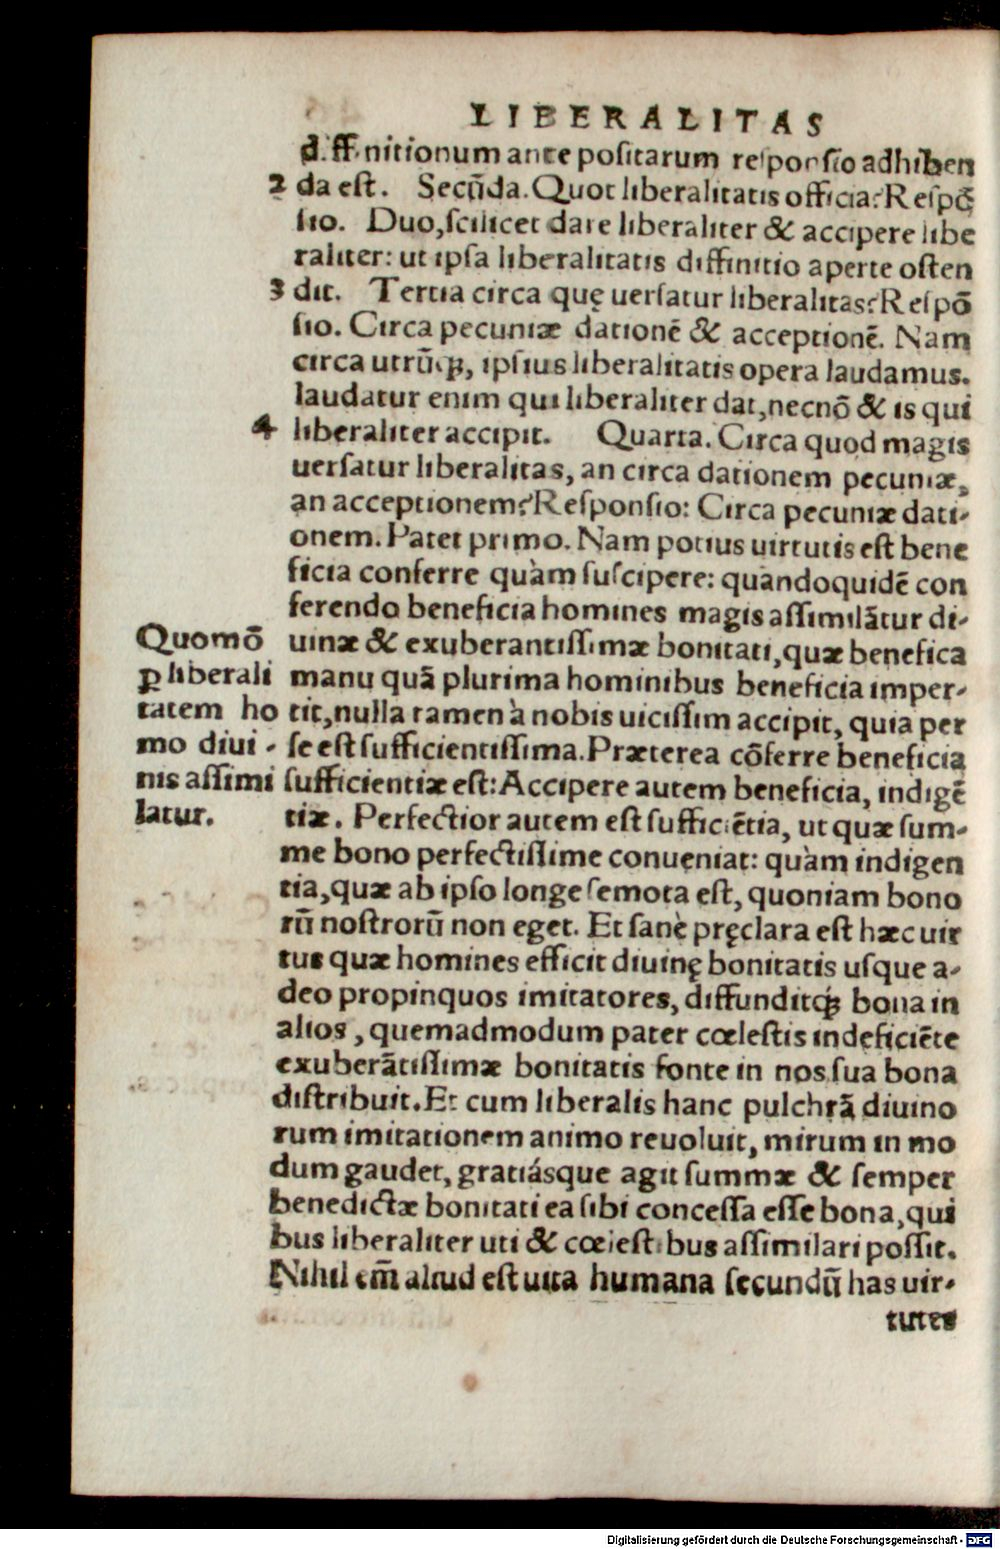 LIBERALITAS
diffinitionum ante positarum responsio adhiben
2 da est. Secūda. Quot liberalitatis officia? Respō
sio. Duo, scilicet dare liberaliter & accipere libe
raliter: ut ipsa liberalitatis diffinitio aperte osten
3 dit. Tertia circa quę uersatur liberalitas? Respō
sio. Circa pecuniæ dationē & acceptionē. Nam
circa utrūqꝫ, ipsius liberalitatis opera laudamus.
laudatur enim qui liberaliter dat, necnō & is qui
4 liberaliter accipit. Quarta. Circa quod magis
uersatur liberalitas, an circa dationem pecuniæ,
an acceptionem? Responsio: Circa pecuniæ dati-
onem. Patet primo. Nam potius uirtutis est bene
ficia conferre quàm suscipere: quandoquidē con
ferendo beneficia homines magis assimilātur di-
uinæ & exuberantissimæ bonitati, quæ benefica
manu quā plurima hominibus beneficia imper-
tit, nulla tamen à nobis uicissim accipit, quia per
se est sufficientissima. Præterea cōferre beneficia
sufficientiæ est: Accipere autem beneficia, indigē
tiæ. Perfectior autem est sufficiētia, ut quæ sum-
me bono perfectissime conueniat: quàm indigen
tia, quæ ab ipso longe semota est, quoniam bono
rū nostrorū non eget. Et sanè pręclara est hæc uir
tus quæ homines efficit diuinę bonitatis usque a-
deo propinquos imitatores, diffunditqꝫ bona in
alios, quemadmodum pater cœlestis indeficiēte
exuberātissimæ bonitatis fonte in nos sua bona
distribuit. Et cum liberalis hanc pulchrā diuino
rum imitationem animo reuoluit, mirum in mo
dum gaudet, gratiásque agit summæ & semper
benedictæ bonitati ea sibi concessa esse bona, qui
bus liberaliter uti & cœlestibus assimilari possit.
Nihil em̄ aliud est uita humana secundū has uir-
tutes
Quomō
ꝑ liberali
tatem ho
mo diui-
nis assimi
latur.
Digitalisierung gefördert durch die Deutsche Forschungsgemeinschaft - DFG